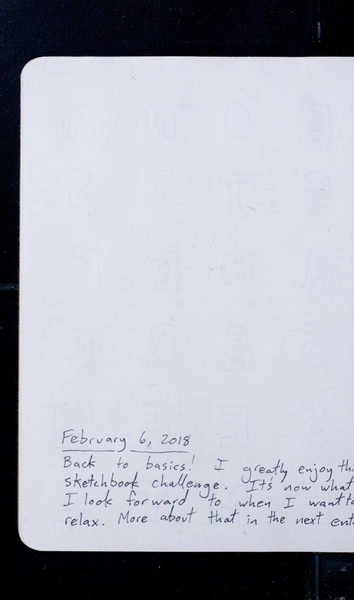 February 6, 2018
Back to basics! I greatly enjoy thi
sketchbook challenge. It's now what
I look forward to when I want to
relax. More about that in the next ent